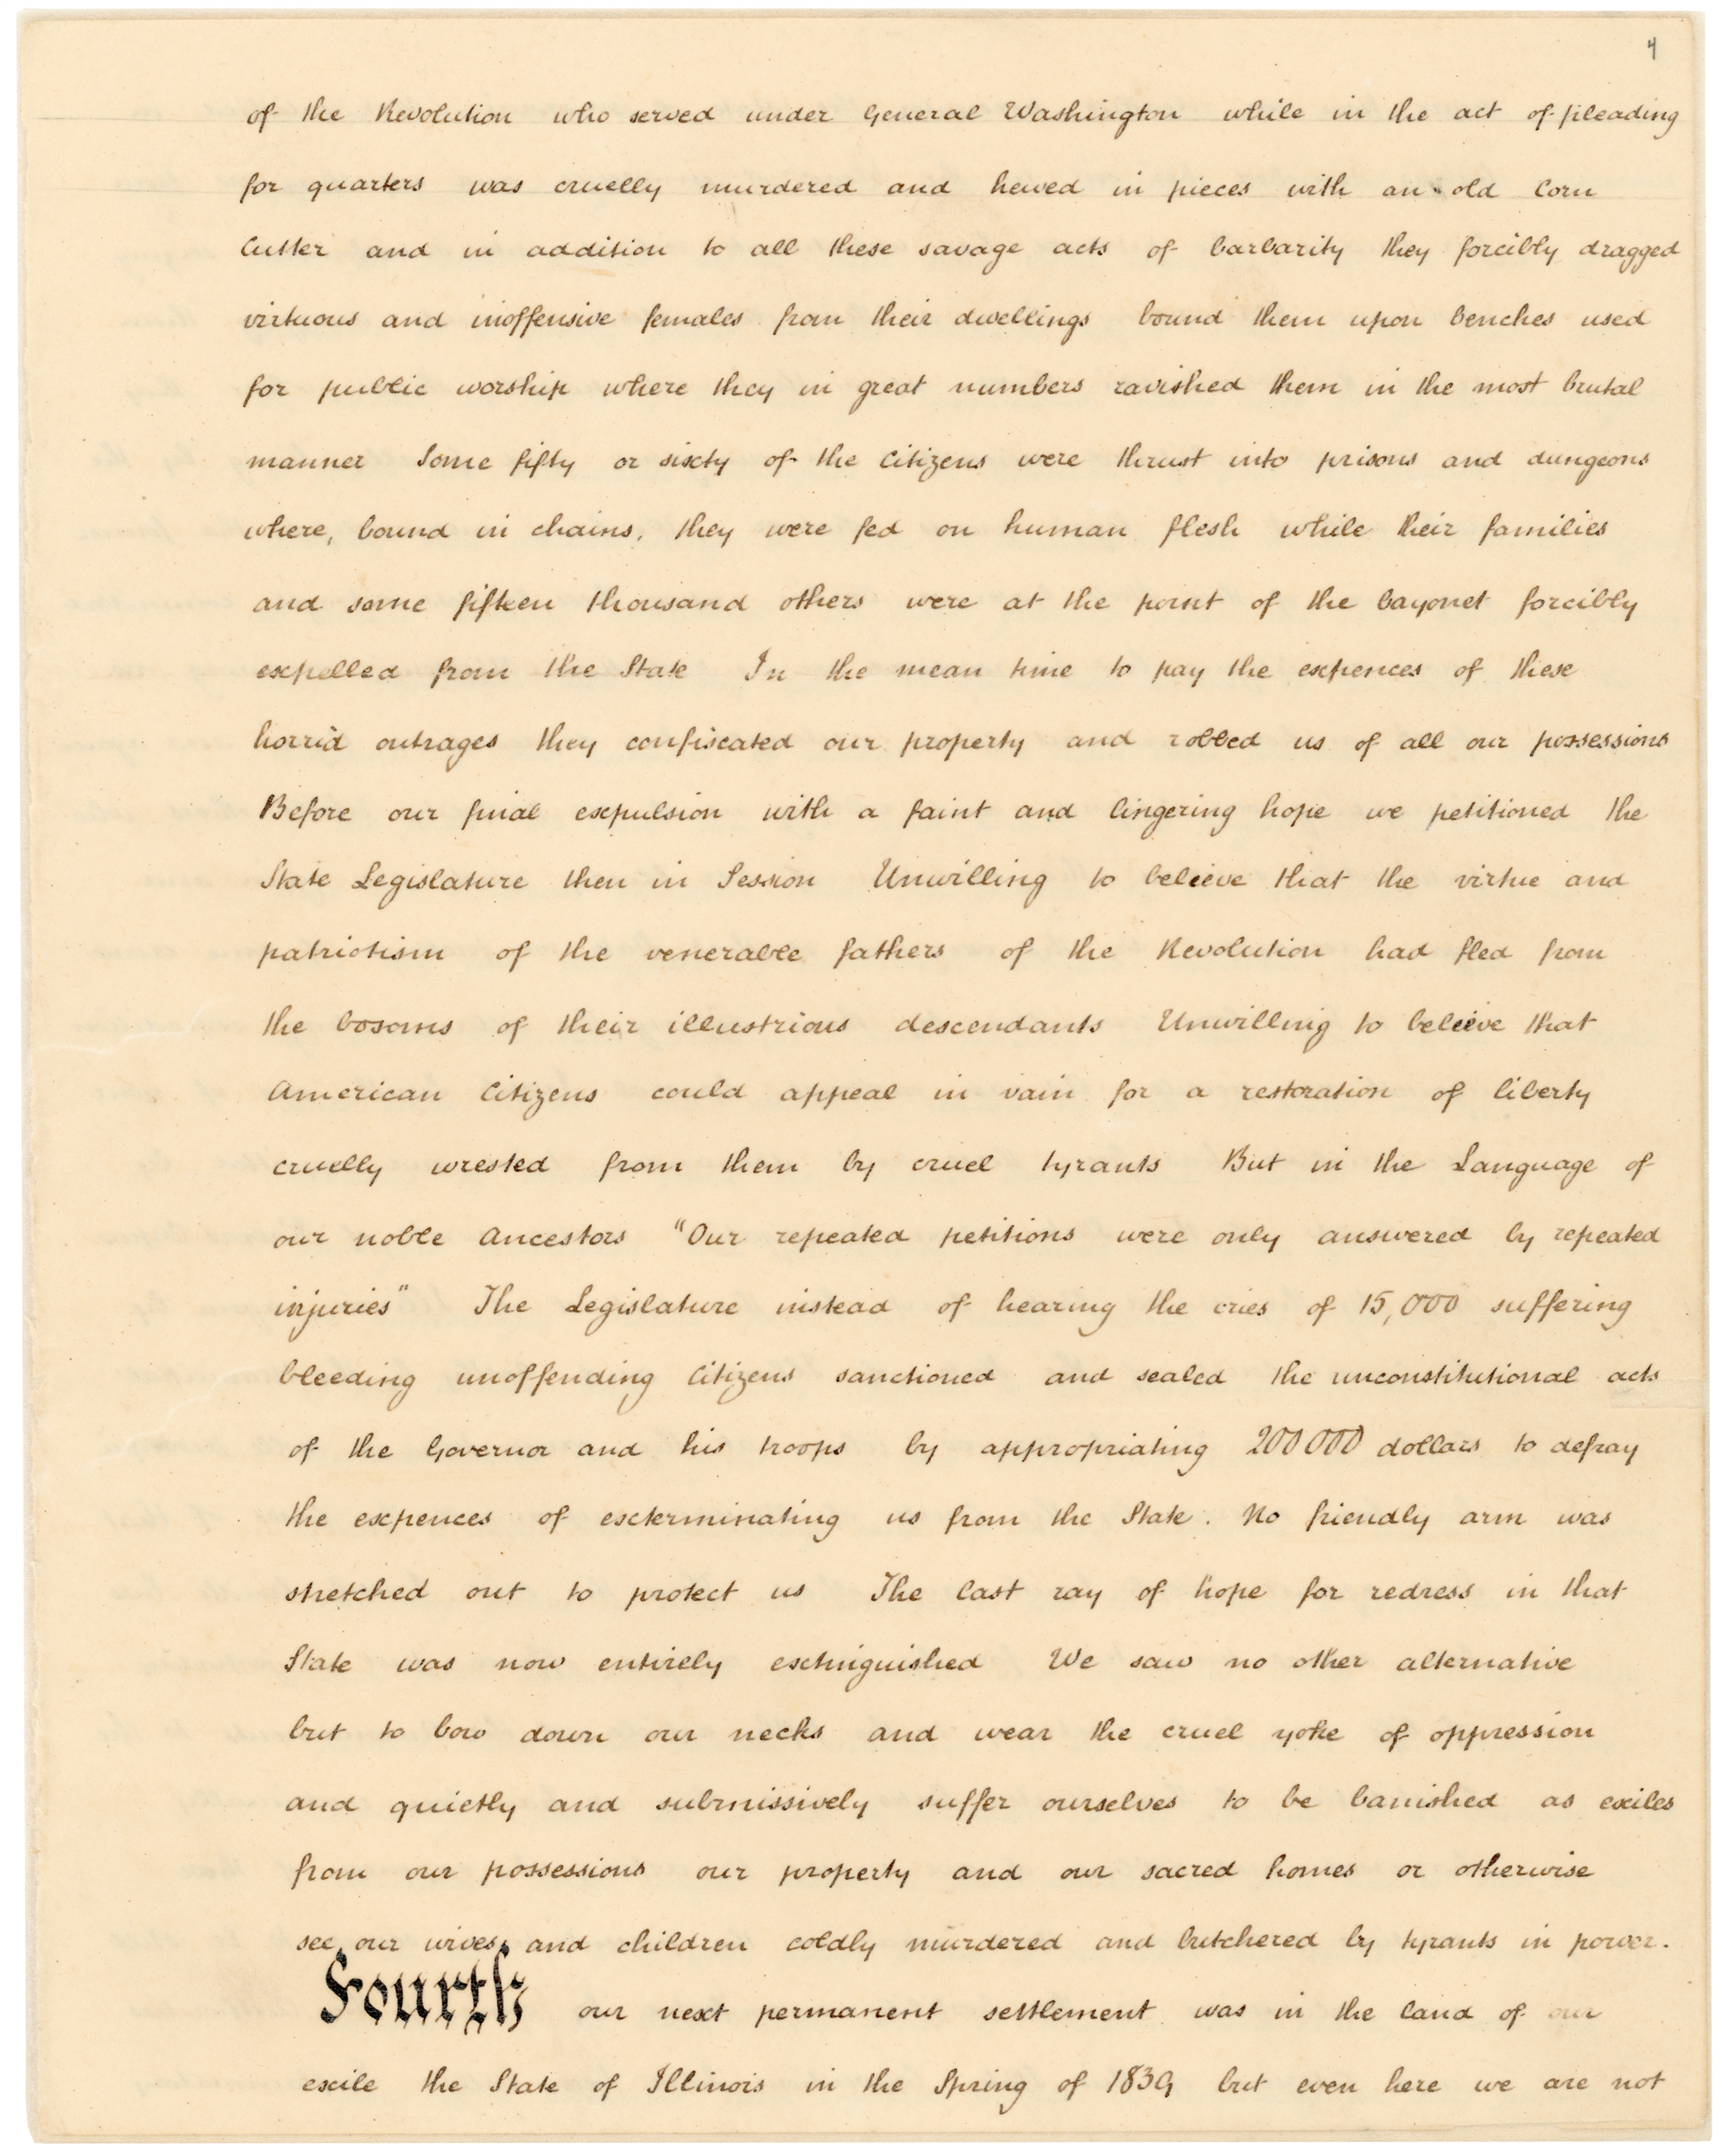 4
of the Revolution who served under General Washington while in the act of pleading
for quarters was cruelly murdered and hewed in pieces with an old Corn
Cutter and in addition to all these savage acts of barbarity they forcibly dragged
virtuous and inoffensive females from their dwellings bound them upon benches used
for public worship where they in great numbers ravished them in the most brutal
manner Some fifty or sixty of the Citizens were thrust into prisons and dungeons
where, bound in chains, they were fed on human flesh while their families
and some fifteen thousand others were at the point of the bayonet forcibly
expelled from the State In the mean time to pay the expences of these
horrid outrages they confiscated our property and robbed us of all our possessions
Before our final expulsion with a faint and lingering hope we petitioned the
State Legislature then in Session Unwilling to believe that the virtue and
patriotism of the venerable fathers of the Revolution had fled from
the bosoms of their illustrious descendants Unwilling to believe that
American Citizens could appeal in vain for a restoration of liberty
cruelly wrested from them by cruel tyrants But in the Language of
our noble Ancestors "Our repeated petitions were only answered by repeated
injuries" The Legislature instead of hearing the cries of 15,000 suffering
bleeding unoffending Citizens sanctioned and sealed the unconstitutional acts
of the Governor and his troops by appropriating 200000 dollars to defray
the expences of exterminating us from the State. No friendly arm was
stretched out to protect us The last ray of hope for redress in that
State was now entirely extinguished We saw no other alternative
but to bow down our necks and wear the cruel yoke of oppression
and quietly and submissively suffer ourselves to be banished as exiles
from our possessions our property and our sacred homes or otherwise
see our wives and children coldly murdered and butchered by tyrants in power.
Fourth our next permanent settlement was in the land of our
exile the State of Illinois in the Spring of 1839 but even here we are not